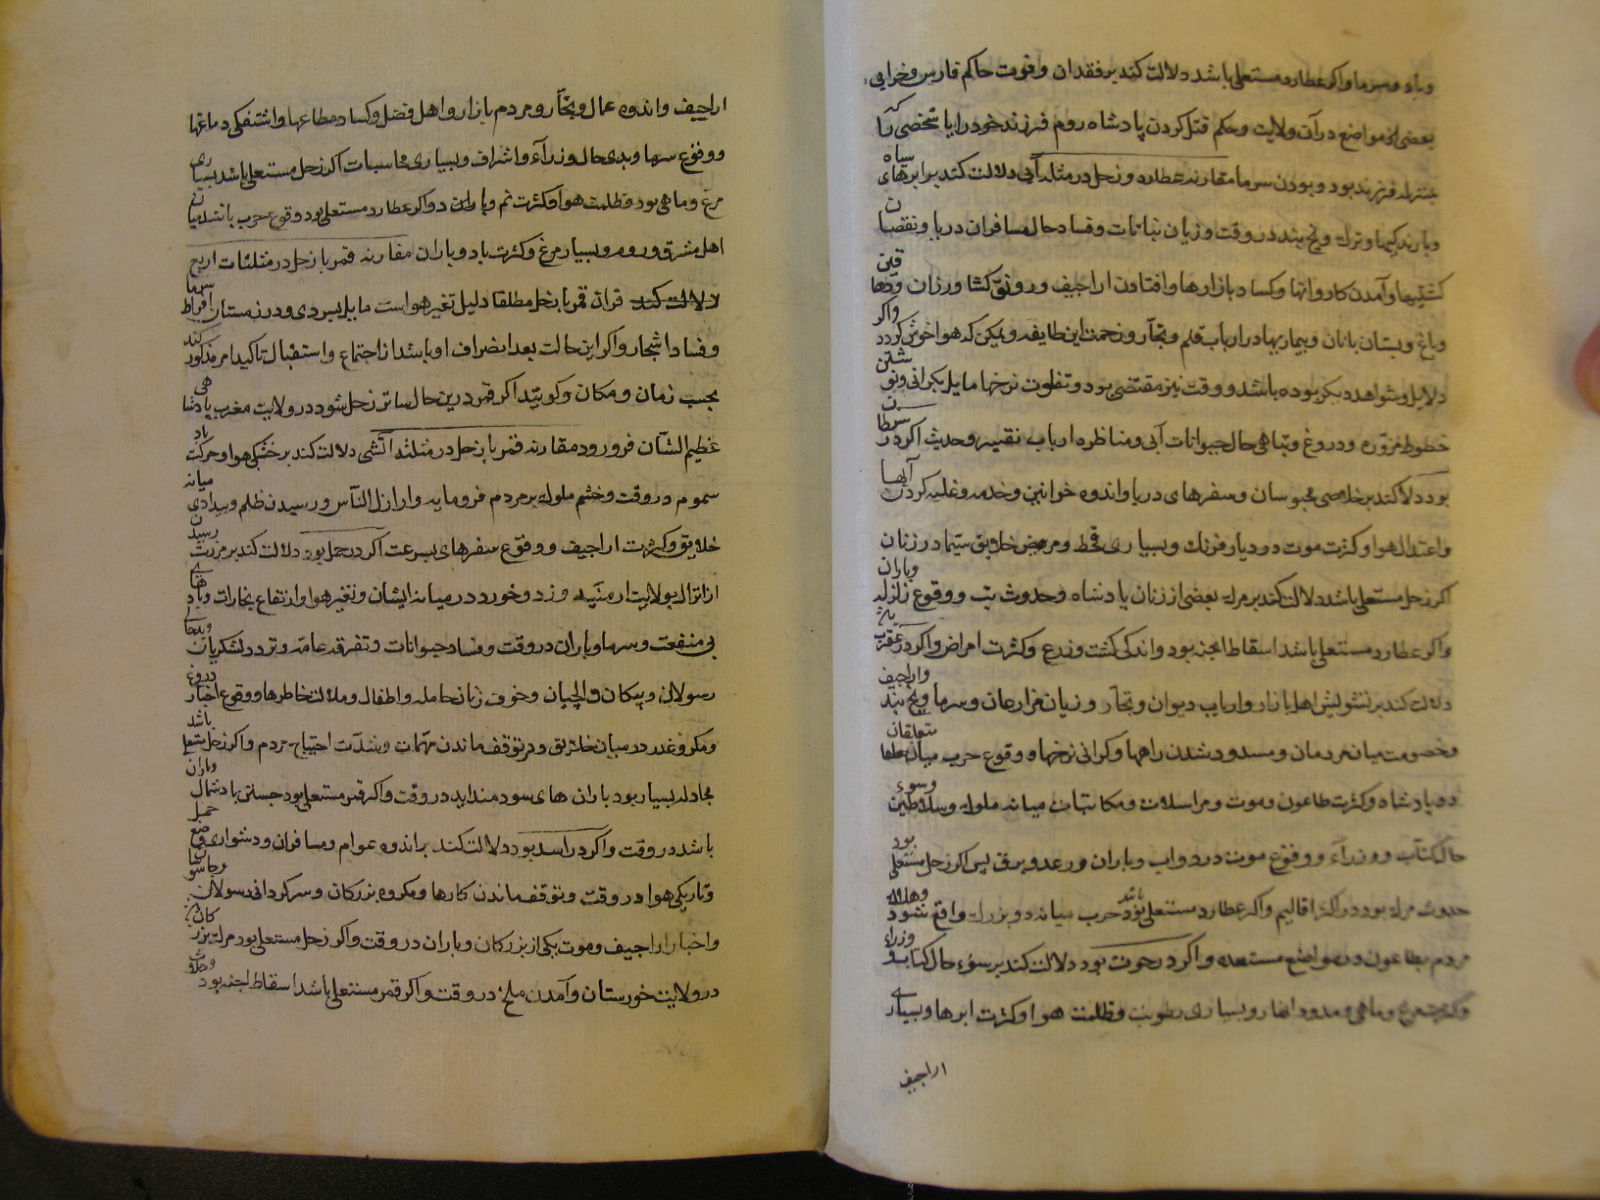 وباء وسرما واکر عطارد مستعلی باشد دلالت کند بر فقدان وفوت حاکم فارس وخرابی
بعضی از مواضع در آن ولایت وحکم قتل کردن پادشاه روم فرزند خود را یا شخصی را که
بمنزله فرزند بود وبودن سرما مقارنه عطارد وزحل در مثلثه آبی دلالت کند بر ابرهای سیاه
وبارندکیها وترک ویخ بند در وقت وزیان نباتات وفساد حال مسافران دریا ونقصان
کشتیها وآمدن کاروانها وکساد بازارها وافتادن اراجیف ورونق کشاورزان ودهاقین
وباغ وبستان بانان وبیماریها در ارباب قلم وتجار وزحمت این طایفه وممکن که هوا خوش کردد واکر
دلایل وشواهد دیکر بوده باشد ووقت نیز مقتضی بود وتفاوت نرخها مایل بکرانی ونوشتن
خطوط مزوره ودروغ وتباهی حال حیوانات آبی ومناظره ارباب تفسیر وحدیث اکر در سرطان
بود دلالت کند بر خلاصی محبوسان وسفرهای دریا واندوه خواتین وخدمه وغلبه کردن آبها
واعتدال هوا وکثرت موت در دیار فرنک وبسیاری قحط ومرض خلایق سیما در زنان
اکر زحل مستعلی باشد دلالت کند بر مرک بعضی از زنان پادشاه وحدوث تب ووقوع زلزله وباران
واکر عطارد مستعلی باشد اسقاط اجنه بود واندکی کشت وزرع وکثرت امراض واکر در عقرب
دلالت کند بر تشویش اهل بازار وارباب دیوان وتجار وزیان مزارعان وسرما ویخ بند واراجیف
وخصومت میان مردمان ومسدود شدن راهها وکرانی نرخها ووقوع حرب میان متعلقان
دو پادشاه وکثرت طاعون وموت ومراسلات ومکاتبات میانه ملوک وسلاطین وسوء
حال کتاب ووزراء ووقوع موت در دواب وباران ورعد وبرق پس اکر زحل مستعلی بود
حدوث مرک بود در اکثر اقالیم واکر عطارد مستعلی باشد حرب میانه دو بزرک واقع شود وهلاک
مردم بطاعون در مواضع مستعده واکر در حوت بود دلالت کند بر سوء حال کتاب ووزراء
وکثرت مرغ وماهی ومدود انهار وبسیاری رطوبت وظلمت هوا وکثرت ابرها وبسیاری
اراجیف
اراجیف واندوه عمال وتجار ومردم بازار واهل فضل وکساد مطاعها واشفتکی دماغها
ووقوع سرما وبدی حال وزراء واشراف وبسیاری محاسبات اکر زحل مستعلی باشد بسیاری
مرغ وماهی بود وظلمت هوا وکثرت نم وباران واکر عطارد مستعلی بود وقوع حرب باشد میان
اهل مشرق وروم وبسیار مرغ وکثرت باد وباران مقارنه قمر با زحل در مثلثات اربع
دلالت کند قران قمر با زحل مطلقا دلیل تغیر هواست مایل بسردی ودر زمستان افراط سرما
وفساد اشجار واکر این حالت بعد انصراف او باشد از اجتماع واستقبال تاکید امر مذکور کند
بحسب زمان ومکان وکویند اکر قمر درین حال ساتر زحل شود در ولایت مغرب پادشاهی
عظیم الشان فرو رود مقارنه قمر با زحل در مثلثه آتشی دلالت کند بر خشکی هوا وحرکت باد
سموم در وقت وخشم ملوک بر مردم فرومایه واراذل الناس ورسیدن ظلم وبیدادی میانه
خلایق وکثرت اراجیف ووقوع سفرهای بسرعت اکر در حمل بود دلالت کند بر مزیت رسیدن
از اتراک بولایت ارمنیه وزد وخورد در میانه ایشان وتغیر هوا وارتفاع بخارات وبادهای
بی منفعت وسرما وباران در وقت وفساد حیوانات وتفرقه عامه وتردد لشکریان
رسولان وپیکان والچیان وخوف زنان حامله واطفال وملالت خاطرها ووقوع اخبار دروغ
ومکر وغدر در میان خلایق ودر توقف ماندن مهمات وشدت احتیاج مردم واکر زحل مستعلی باشد
مجادله بسیار بود باران های سودمند اید در وقت واکر قمر مستعلی بود جستن باد شمال وباران
باشد در وقت واکر در اسد بود دلالت کند بر اندوه عوام ومسافران ودشواری وضع حمل
وتاریکی هوا در وقت وتوقف ماندن کارها ومکروه بزرکان وسرکردانی رسولان وجاسوسان
واخبار اراجیف وموت یکی از بزرکان وباران در وقت واکر زحل مستعلی بود مرک بزرکان
در ولایت خورستان وآمدن ملخ در وقت واکر قمر مستعلی باشد اسقاط اجنه بود